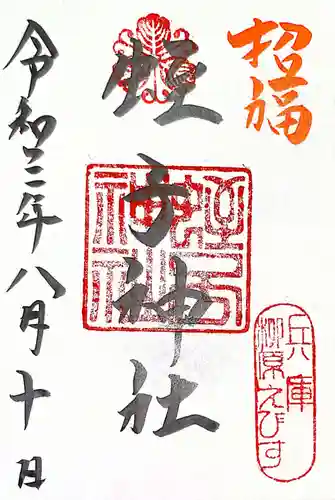 招福
蛭子神社
蛭子
神社
兵庫
柳原えびす
令和三年八月十日